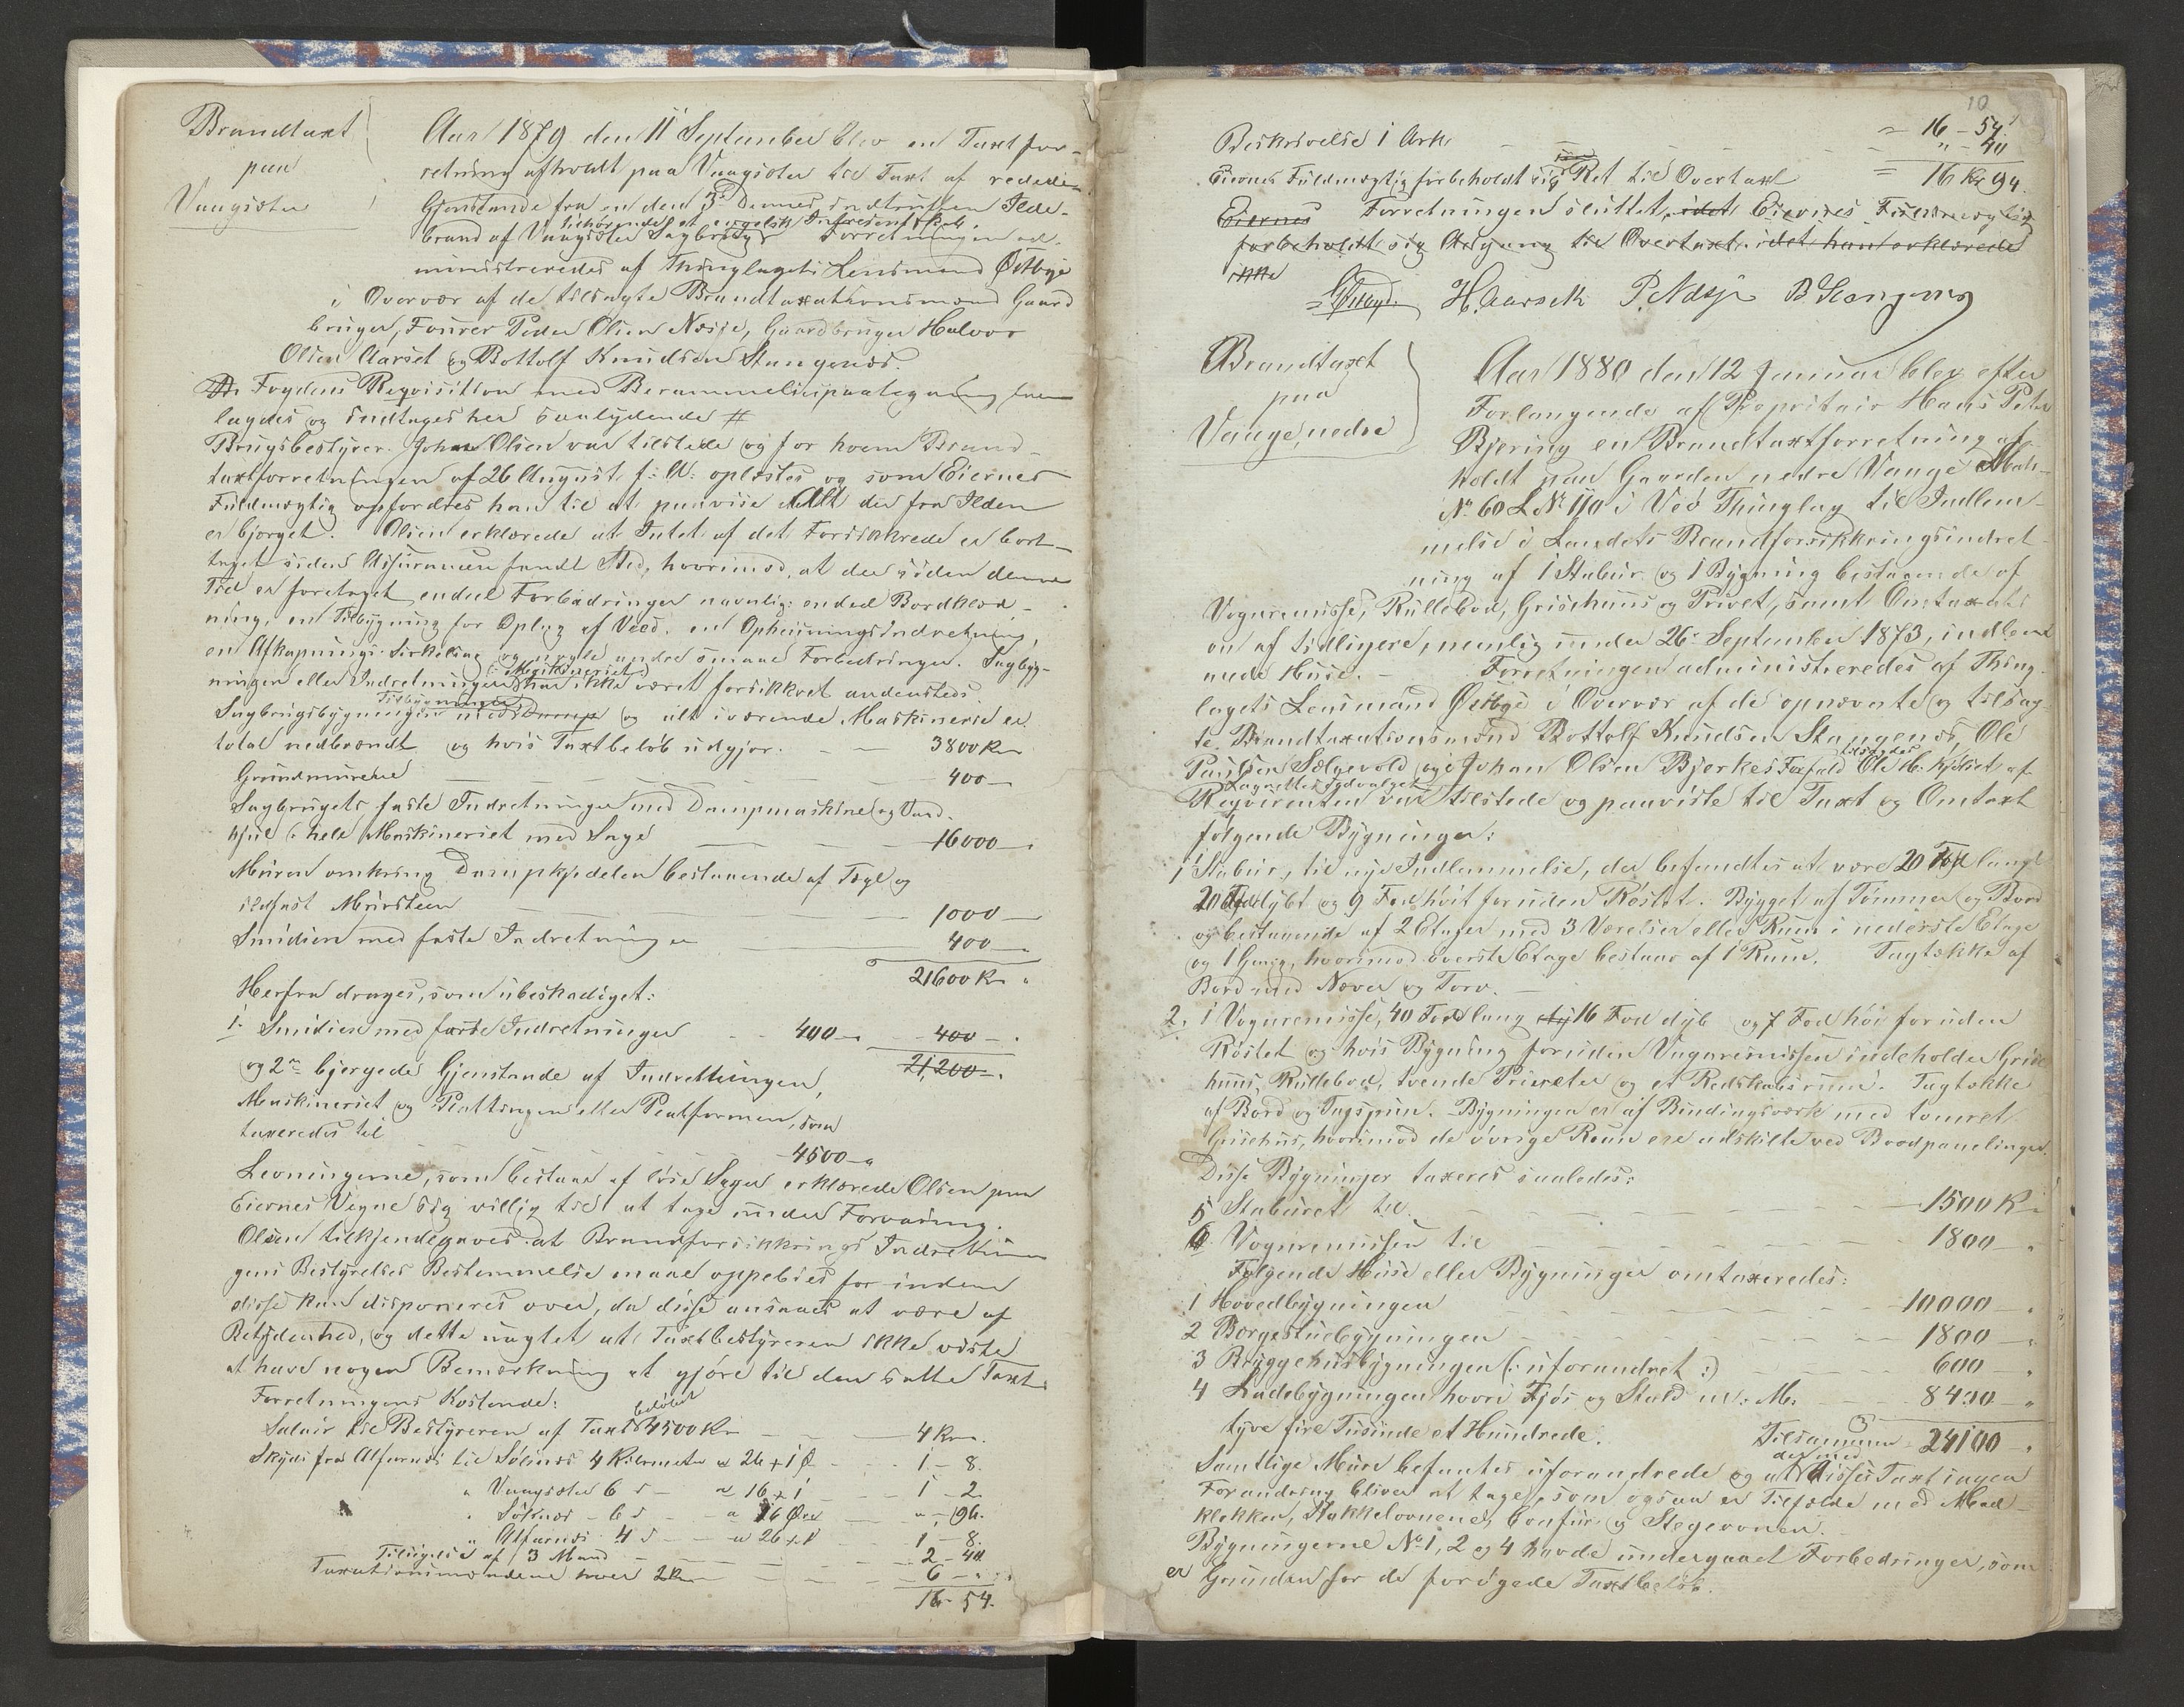 Brandtaxt
paa
Vaagsæter
Aar 1879 den 11 September blev en Taxtfor-
retning afholdt paa Vaagsæter til Taxt af reddede
Gjenstande fra en den 3die Dennes indtruffen Ilde-
tilhørende et engelsk Interesentskab.
brand af Vaagsæter Sagbrug Forretningen ad-
ministreredes af Thinglagets Lensmand Østbye
i Overvær af de tilsagte Brandtaxationsmænd Gaard
bruger, Fourer Peder Olsen Nesje, Gaardbruger Halvor
Olsen Aarset og Bottolf Knudsen Stangenæs.
Fogdens Reqvisition med Berammelsespaategning frem
lagdes og indtages her saalydende #
Brugsbestyrer Johan Olsen var tilstede og for hvem Brand-
taxtforretningen af 26 August f: A: oplæstes og som Eiernes
Fuldmægtig opfordres han til at paavise Alt der fra Ilden
er bjerget. Olsen erklærede at Intet af det Forsikkrede er bort-
taget siden Assurancen fandt Sted, hvorimod, at der siden denne
Tid er foretaget endeel Forbedringer navnlig: endeel Bordklæd-
ning, en Tilbygning for Oplag af Veed, en Opheisningsindretning,
en Afkapnings-Sirkelsag og nogle andre smaae Forbedringer. Sagbyg-
(: Maskineriet :)
ningen eller Indretningen har ikke været forsikkret andensteds
Tilbygninger
Sagbrugsbygningen med Damp og alt iværende Maskinerie er
total nedbrændt og hvis Taxtbeløb udgjør - - 3800 Kr
Grundmurene - - - 400 -
Sagbrugets faste Indretninger med Dampmaskine og Vand-
hjul (: hele Maskineriet med Sage - - 16000 -
Muren omkring Dampkjedelen bestaaende af Tegl og
ildfast Muursteen - - - 1000 -
Smidien med faste Indretninger - - 400 -
21600 Kr "
Herfra drages, som ubeskadiget:
1. Smidien med faste Indretninger - - 400 - 400 - .
og 2re bjergede Gjenstande af Indretningen, 21,200 - .
Maskineriet og Plattingen eller Platformen, som
taxeredes til - - - 4500 - "
Levningerne, som bestaar af løse Sager erklærede Olsen paa
Eiernes Vegne sig villig til at tage under Forvaring.
Olsen tilkjendegaves at Brandforsikkrings Indretnin-
gens Bestyrelses Bestemmelse maae oppebies før indem
disse kan disponeres over, da disse ansaaes at være af
Betydenhed, og dette uagtet at Taxtbestyreren ikke vidste
at have nogen Bemærkning at gjøre til den satte Taxt.
Forretningens Kostende:
beløbet
Salair til Bestyreren af Taxt 4500 Kr - - 4 Kr.
Skyds fra Alfarnæs til Sølsnæs 4 Kilometer a 26 + 1 Ø - - 1 - 8.
" Vaagsæter 6 d - a 16 + 1 - - 1 - 2.
" Sølsnæs - 6 d - a 16 Øre - - " - 96.
" Alfarnæs 4 d - a 26 + 1 - - 1 - 8.
Tilsigelse af 3 Mand - - - 2 - 40
Taxationsmændene hver 2 Kr - - - 6 - "
16 - 54.
10
= 16 - 54.
Beskrivelse 1 Ark - - - " - 40
= 16 Kr 94.
Eiernes Fuldmægtig forbeholdt sig Ret til Overtaxt
Eiernes Forretningen sluttet, idet Eiernes Fuldmægtig
forbeholdt sig Adgang til Overtaxt. idet han erklærede
ikke
Østbye. H. Aarseth P. Nesje B Stangenes
Brandtaxt
paa
Vaage, nedre
Aar 1880 den 12 Januar blev efter
Forlangende af Propritair Hans Peter
Bjering en Brandtaxtforretning af-
holdt paa Gaarden nedre Vaage Matr-
No 60 L No 110 i Veø Thinglag til Indlem-
melse i Landets Brandforsikkringsindret-
ning af 1 Stabur og 1 Bygning bestaaende af
Vognremisse, Rullebod, Grisehuus og Privet, samt Omtaxati-
on af tidligere, nemlig under 26. September 1873, indlem-
mede Huse. - Forretningen administreredes af Thing-
lagets Lensmand Østbye i Overvær af de opnævnte og tilsag-
te Brandtaxationsmænd Bottolf Knudsen Stangenæs, Ole
tilsagdes
Paulsen Sølgevold og i Johan Olsen Bjerkes Forfald Ole H. Kjølset af
Lagrettesudvalget
Reqvirenten var tilstede og paaviste til Taxt og Omtaxt
følgende Bygninger:
1 Stabur, til nye Indlemmelse, der befandtes at være 20 Fod langt
20 Fod dybt og 9 Fod høit foruden Røstet. Bygget af Tømmer og Bord
og bestaaende af 2 Etager med 3 Værelser eller Rum i nederste Etage
og 1 Gang, hvorimod øverste Etage bestaar af 1 Rum. Tagtække af
Bord med Næver og Torv. -
2. 1 Vognremisse, 40 Fod lang dy 16 Fod dyb og 7 Fod høi foruden
Røstet og hvis Bygning foruden Vognremissen indeholder Grise
huus, Rullebod, tvende Priveter og et Redskabsrum. Tagtække
af Bord og Tagspaan. Bygningen er af Bindingsværk med tømret
Grisehus, hvorimod de øvrige Rum ere adskilte ved Bordpanelinger.
Disse Bygninger taxeres saaledes:
5 Staburet til - - - 1500 Kr
6 Vognremissen til - - - 1800 - "
Følgende Huse eller Bygninger omtaxeredes:
1 Hovedbygningen - - - 10000 - "
2 Borgestuebygningen - - - 1800 - "
3 Bryggehusbygningen (: uforandret :) - - 600 - "
4 Ladebygningen hvori Fjøs og Stald m: M. - - 8400 - "
tyve fire Tusinde et Hundrede. Tilsammen 24100 - "
der med
Samtlige Mure befantes uforandrede og at disses Taxt ingen
Forandring bliver at tage, som ogsaa er Tilfælde med Mad-
klokken, Kakkelovnene, Comfur og Stegeovnen.
Bygningerne No 1, 2 og 4 havde undergaaet Forbedringer, som
er Grunden for de forøgede Taxtbeløb.